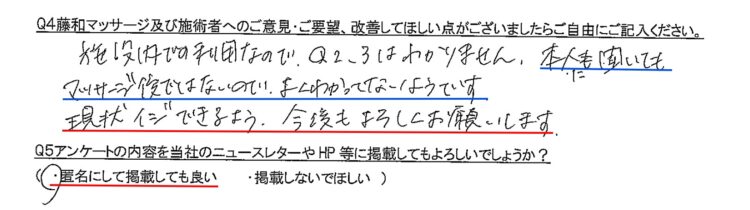 Q4藤和マッサージ及び施術者へのご意見・ご要望、改善してほしい点がございましたらご自由にご記入ください。
施設内での利用なので、Q2、3はわかりません。本人に聞いても
マッサージ後ではないので、よくわかってないようです
現状イジできるよう、今後もよろしくお願いします。
Q5アンケートの内容を当社のニュースレターやHP等に掲載してもよろしいでしょうか？
（ ・匿名にして掲載しても良い ・掲載しないでほしい ）